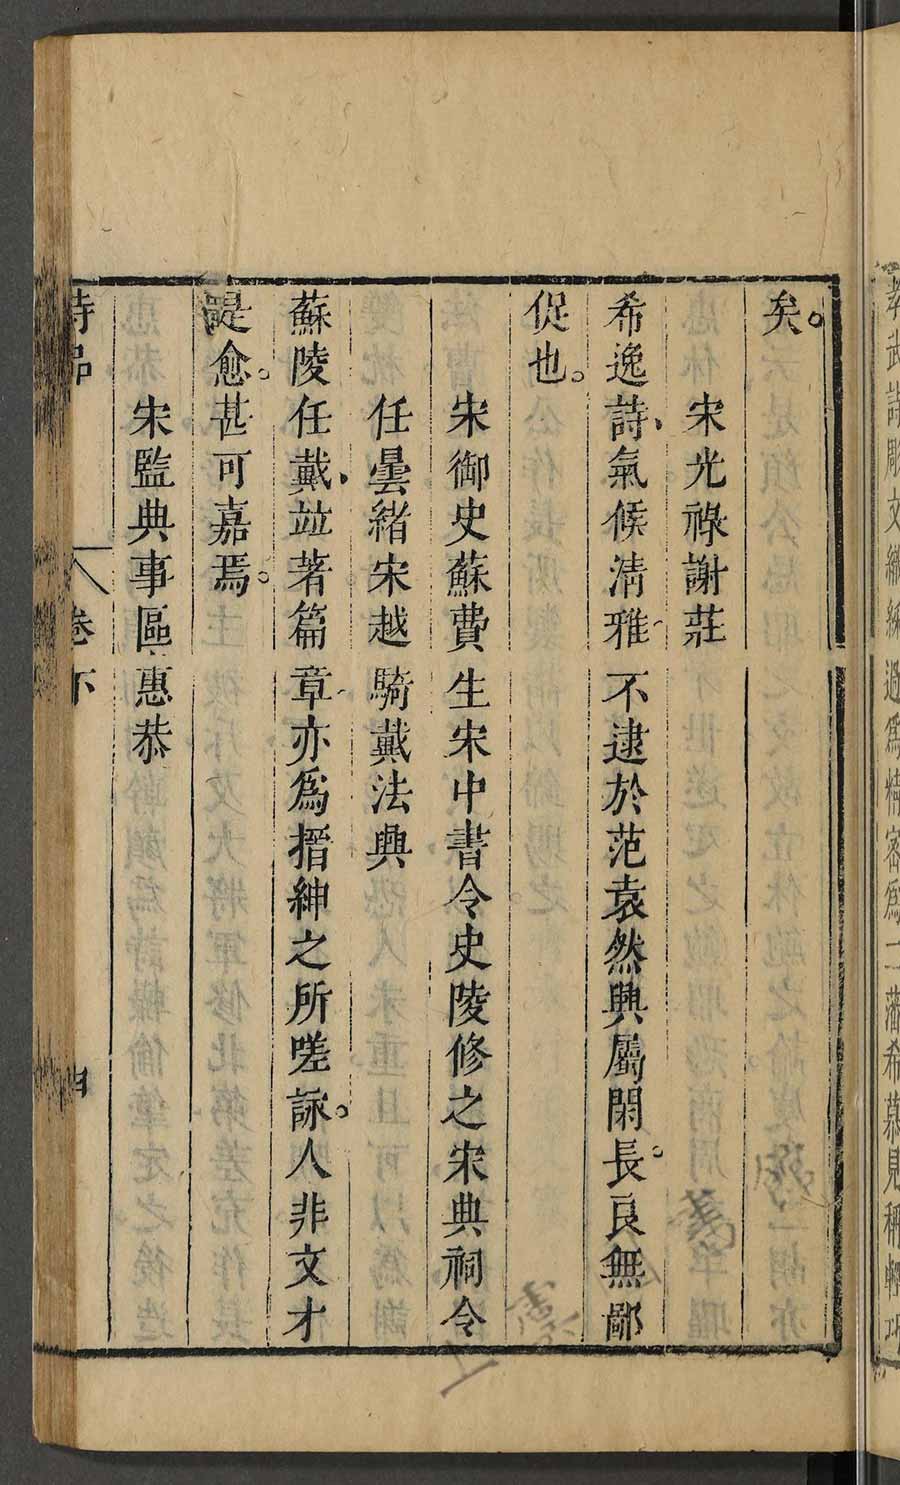 孝武詩雕文織綵過爲精密爲二藩希慕見稱輕巧
矣。
宋光祿謝莊
希逸詩氣候清雅不逮於范袁然興屬閑長。良無鄙
促也。
宋御史蘇費生宋中書令史陵修之宋典祠令
任曇緒宋越騎戴法興
蘇陵任戴竝著篇章亦爲搢紳之所嗟詠。人非文才
是愈。甚可嘉焉。
宋監典事區惠恭
詩品
卷下